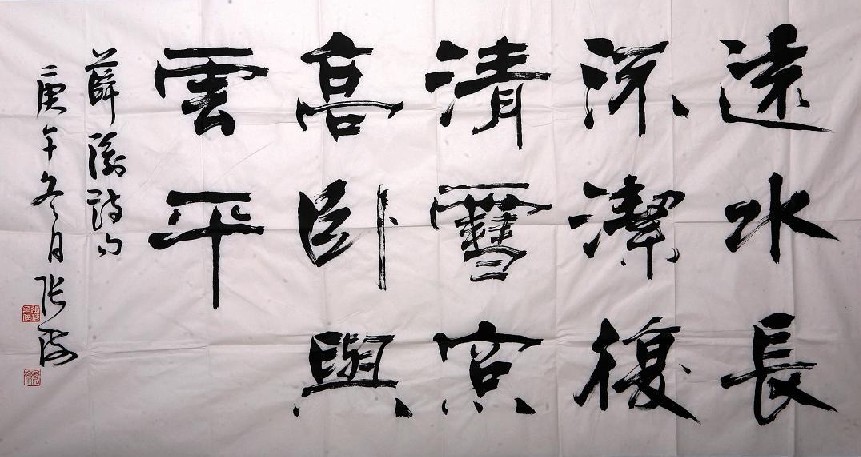 遠水長
流潔復
清雪窗
高卧與
雲平
薛濤詩句
庚午冬月張海